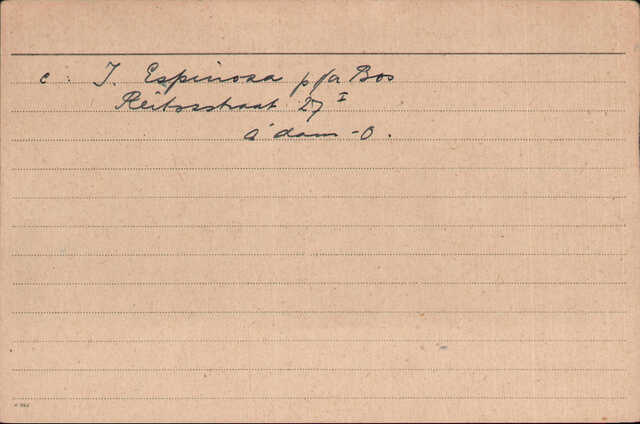 c : J. Espinosa p/a Bos
Reitzstraat 27 I
A'dam - O.